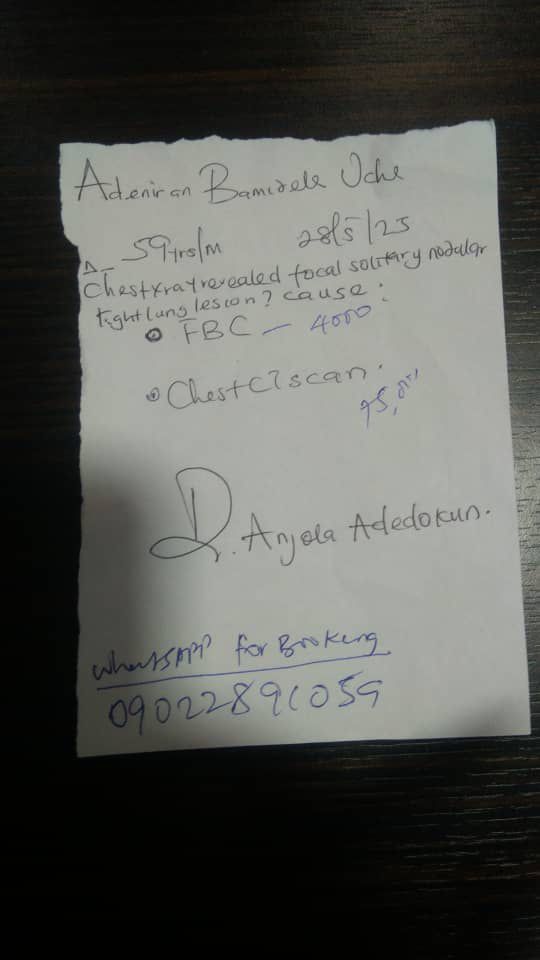 Adeniran Bamidele Uche
59yrs/M 28/5/25
Δ - Chest xray revealed focal solitary nodular
right lung lesion? cause:
FBC - 4000
Chest CT scan.
95,000
Dr. Anjola Adedokun.
WhatsAPP for Booking
09022891059